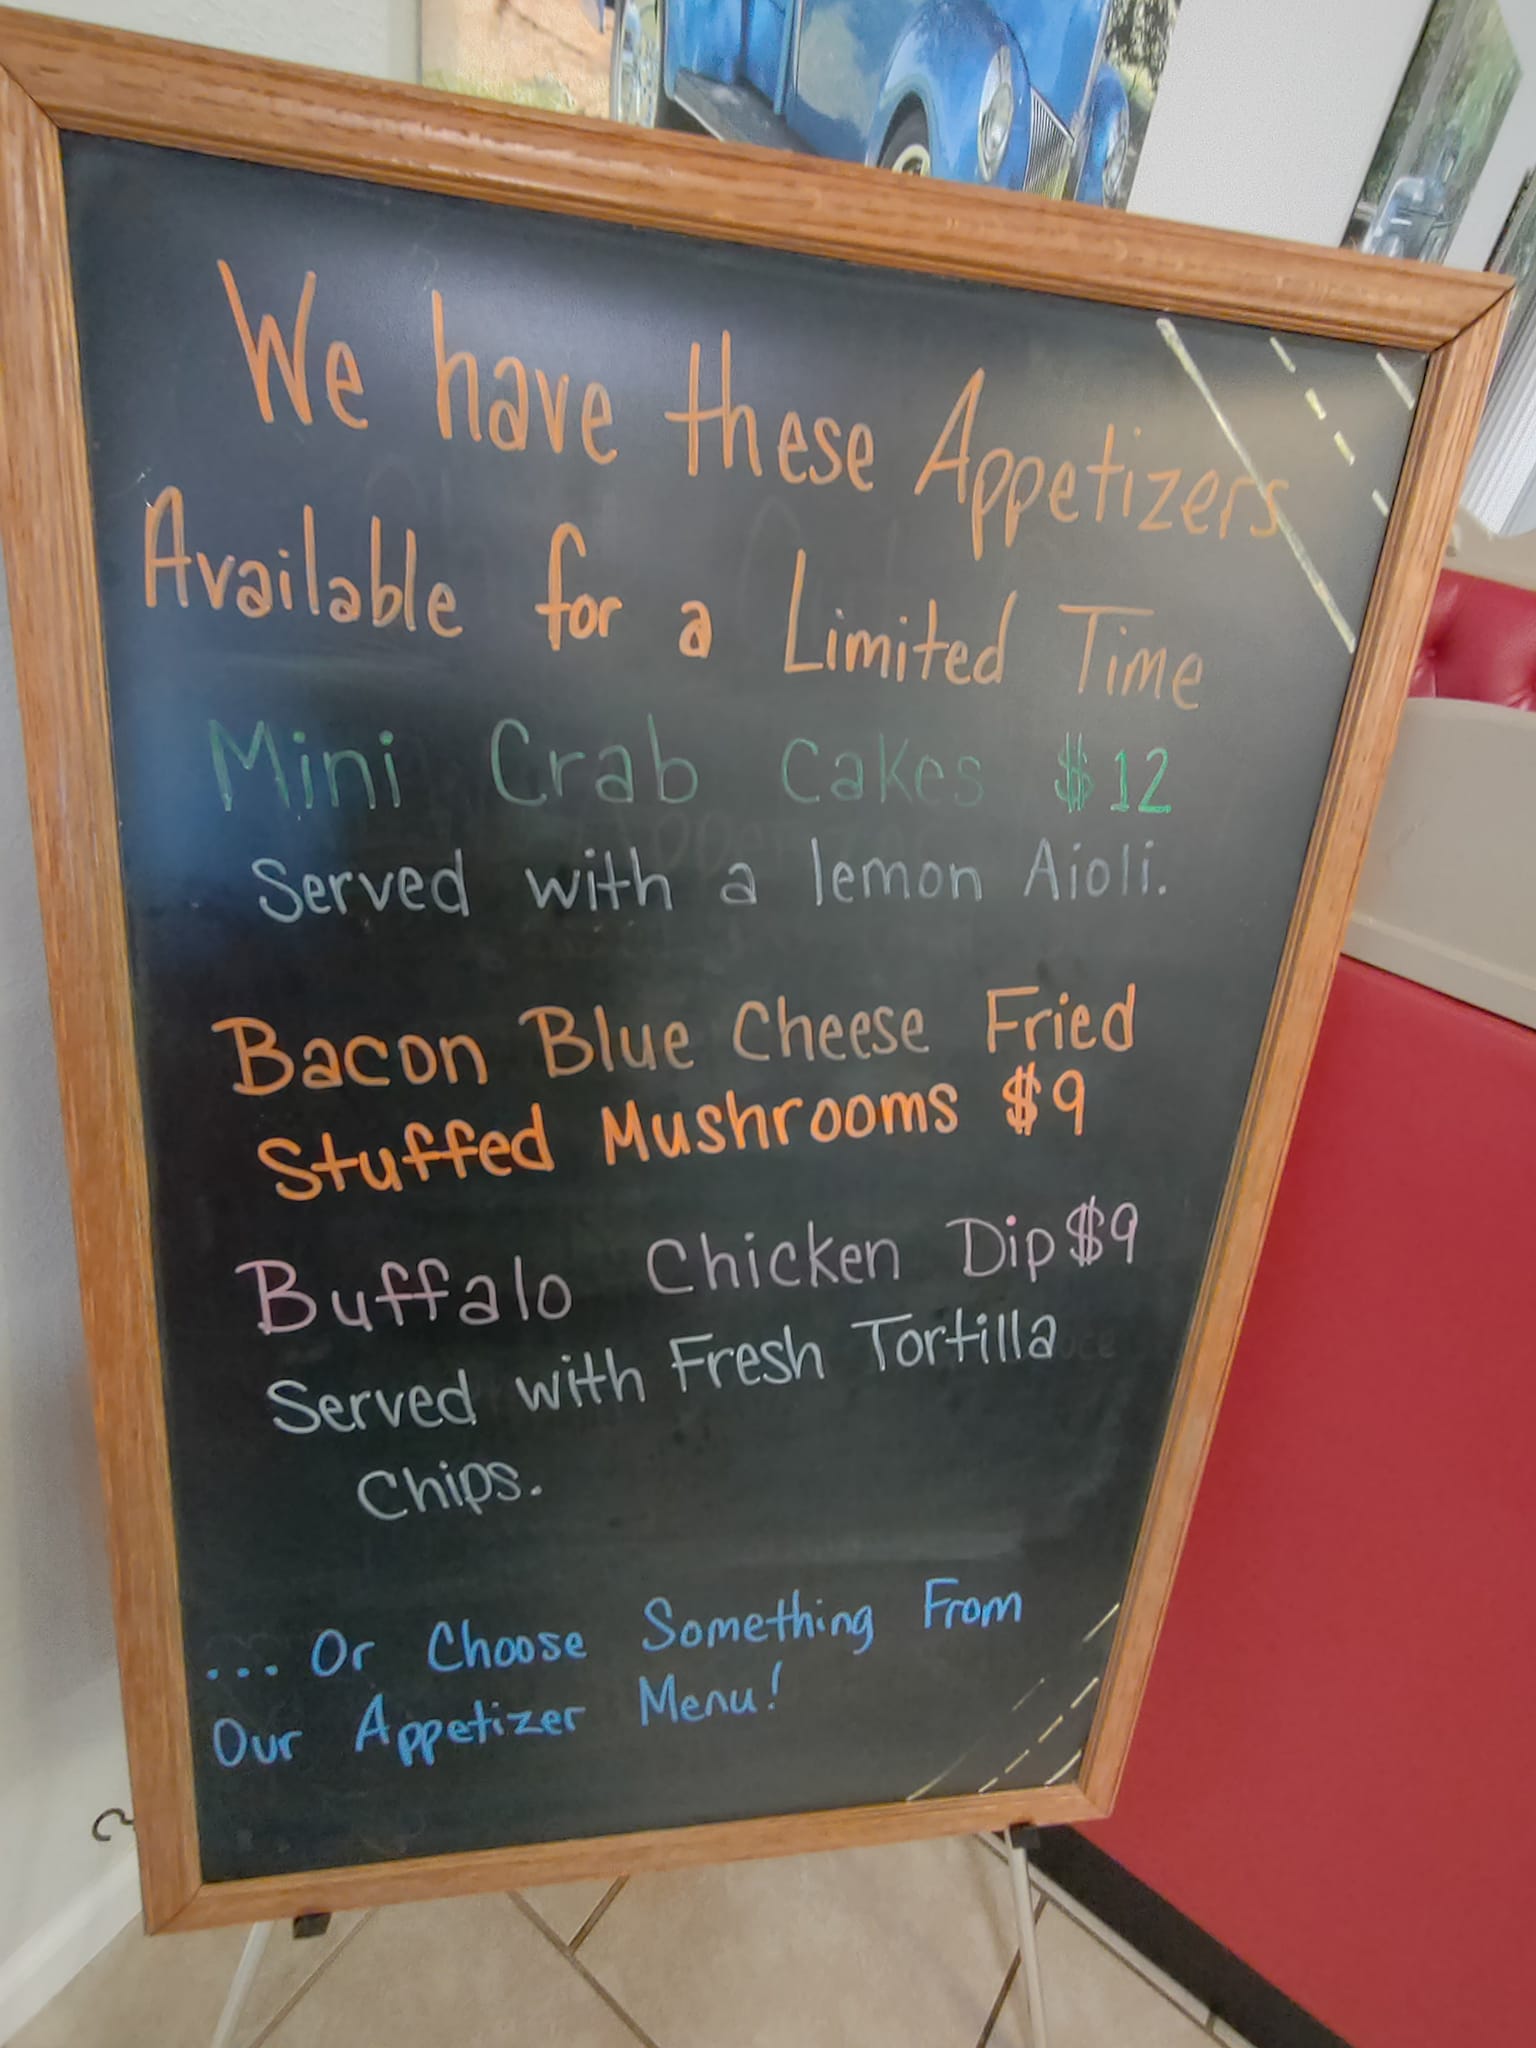 We have these Appetizers
Available for a Limited Time
Mini Crab Cakes $12
Served with a lemon Aioli.
Bacon Blue Cheese Fried
Stuffed Mushrooms $9
Buffalo Chicken Dip $9
Served with Fresh Tortilla
Chips.
... Or Choose Something From
Our Appetizer Menu!